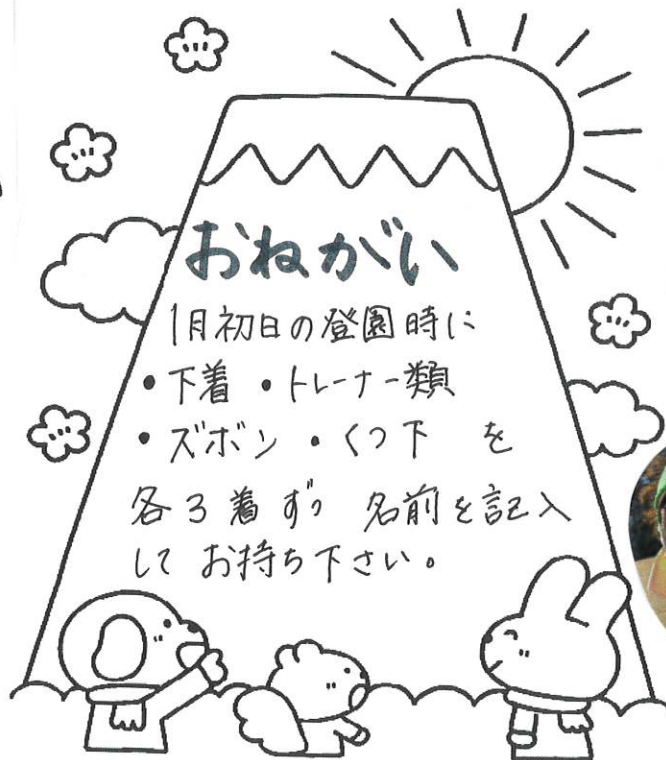 おねがい
1月初日の登園時に
・下着 ・トレーナー類
・ズボン ・くつ下 を
各3着ずつ 名前を記入
して お持ち下さい。